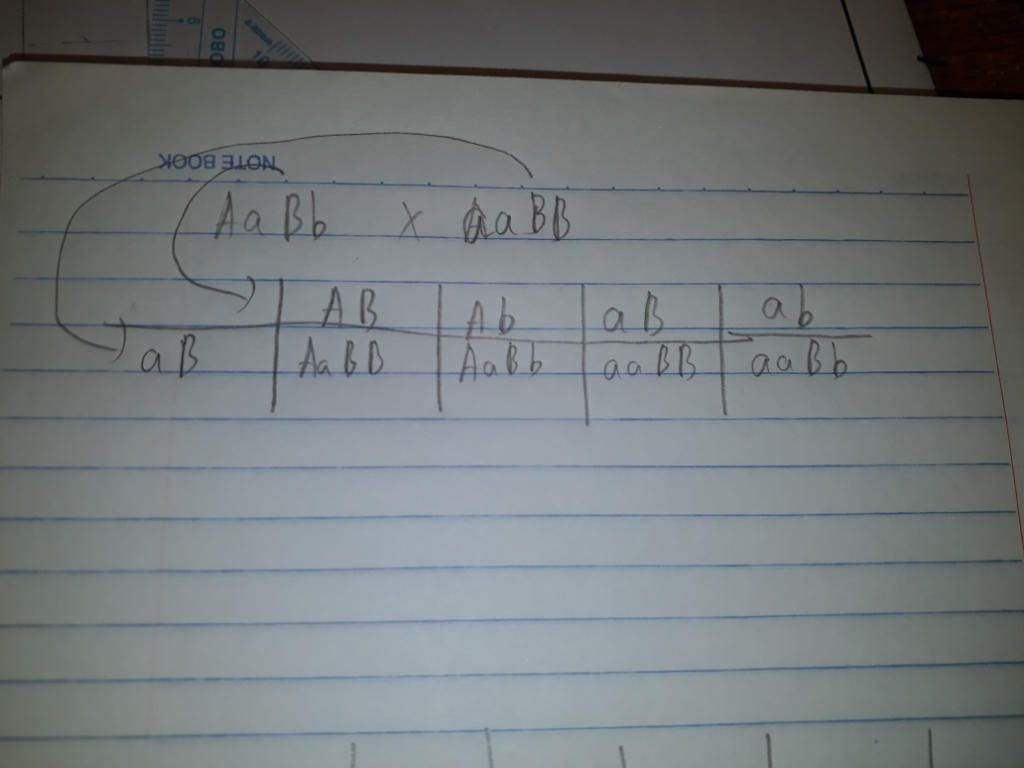 NOTE BOOK
AaBb x aaBB
AB Ab aB ab
aB AaBB AaBb aaBB aaBb